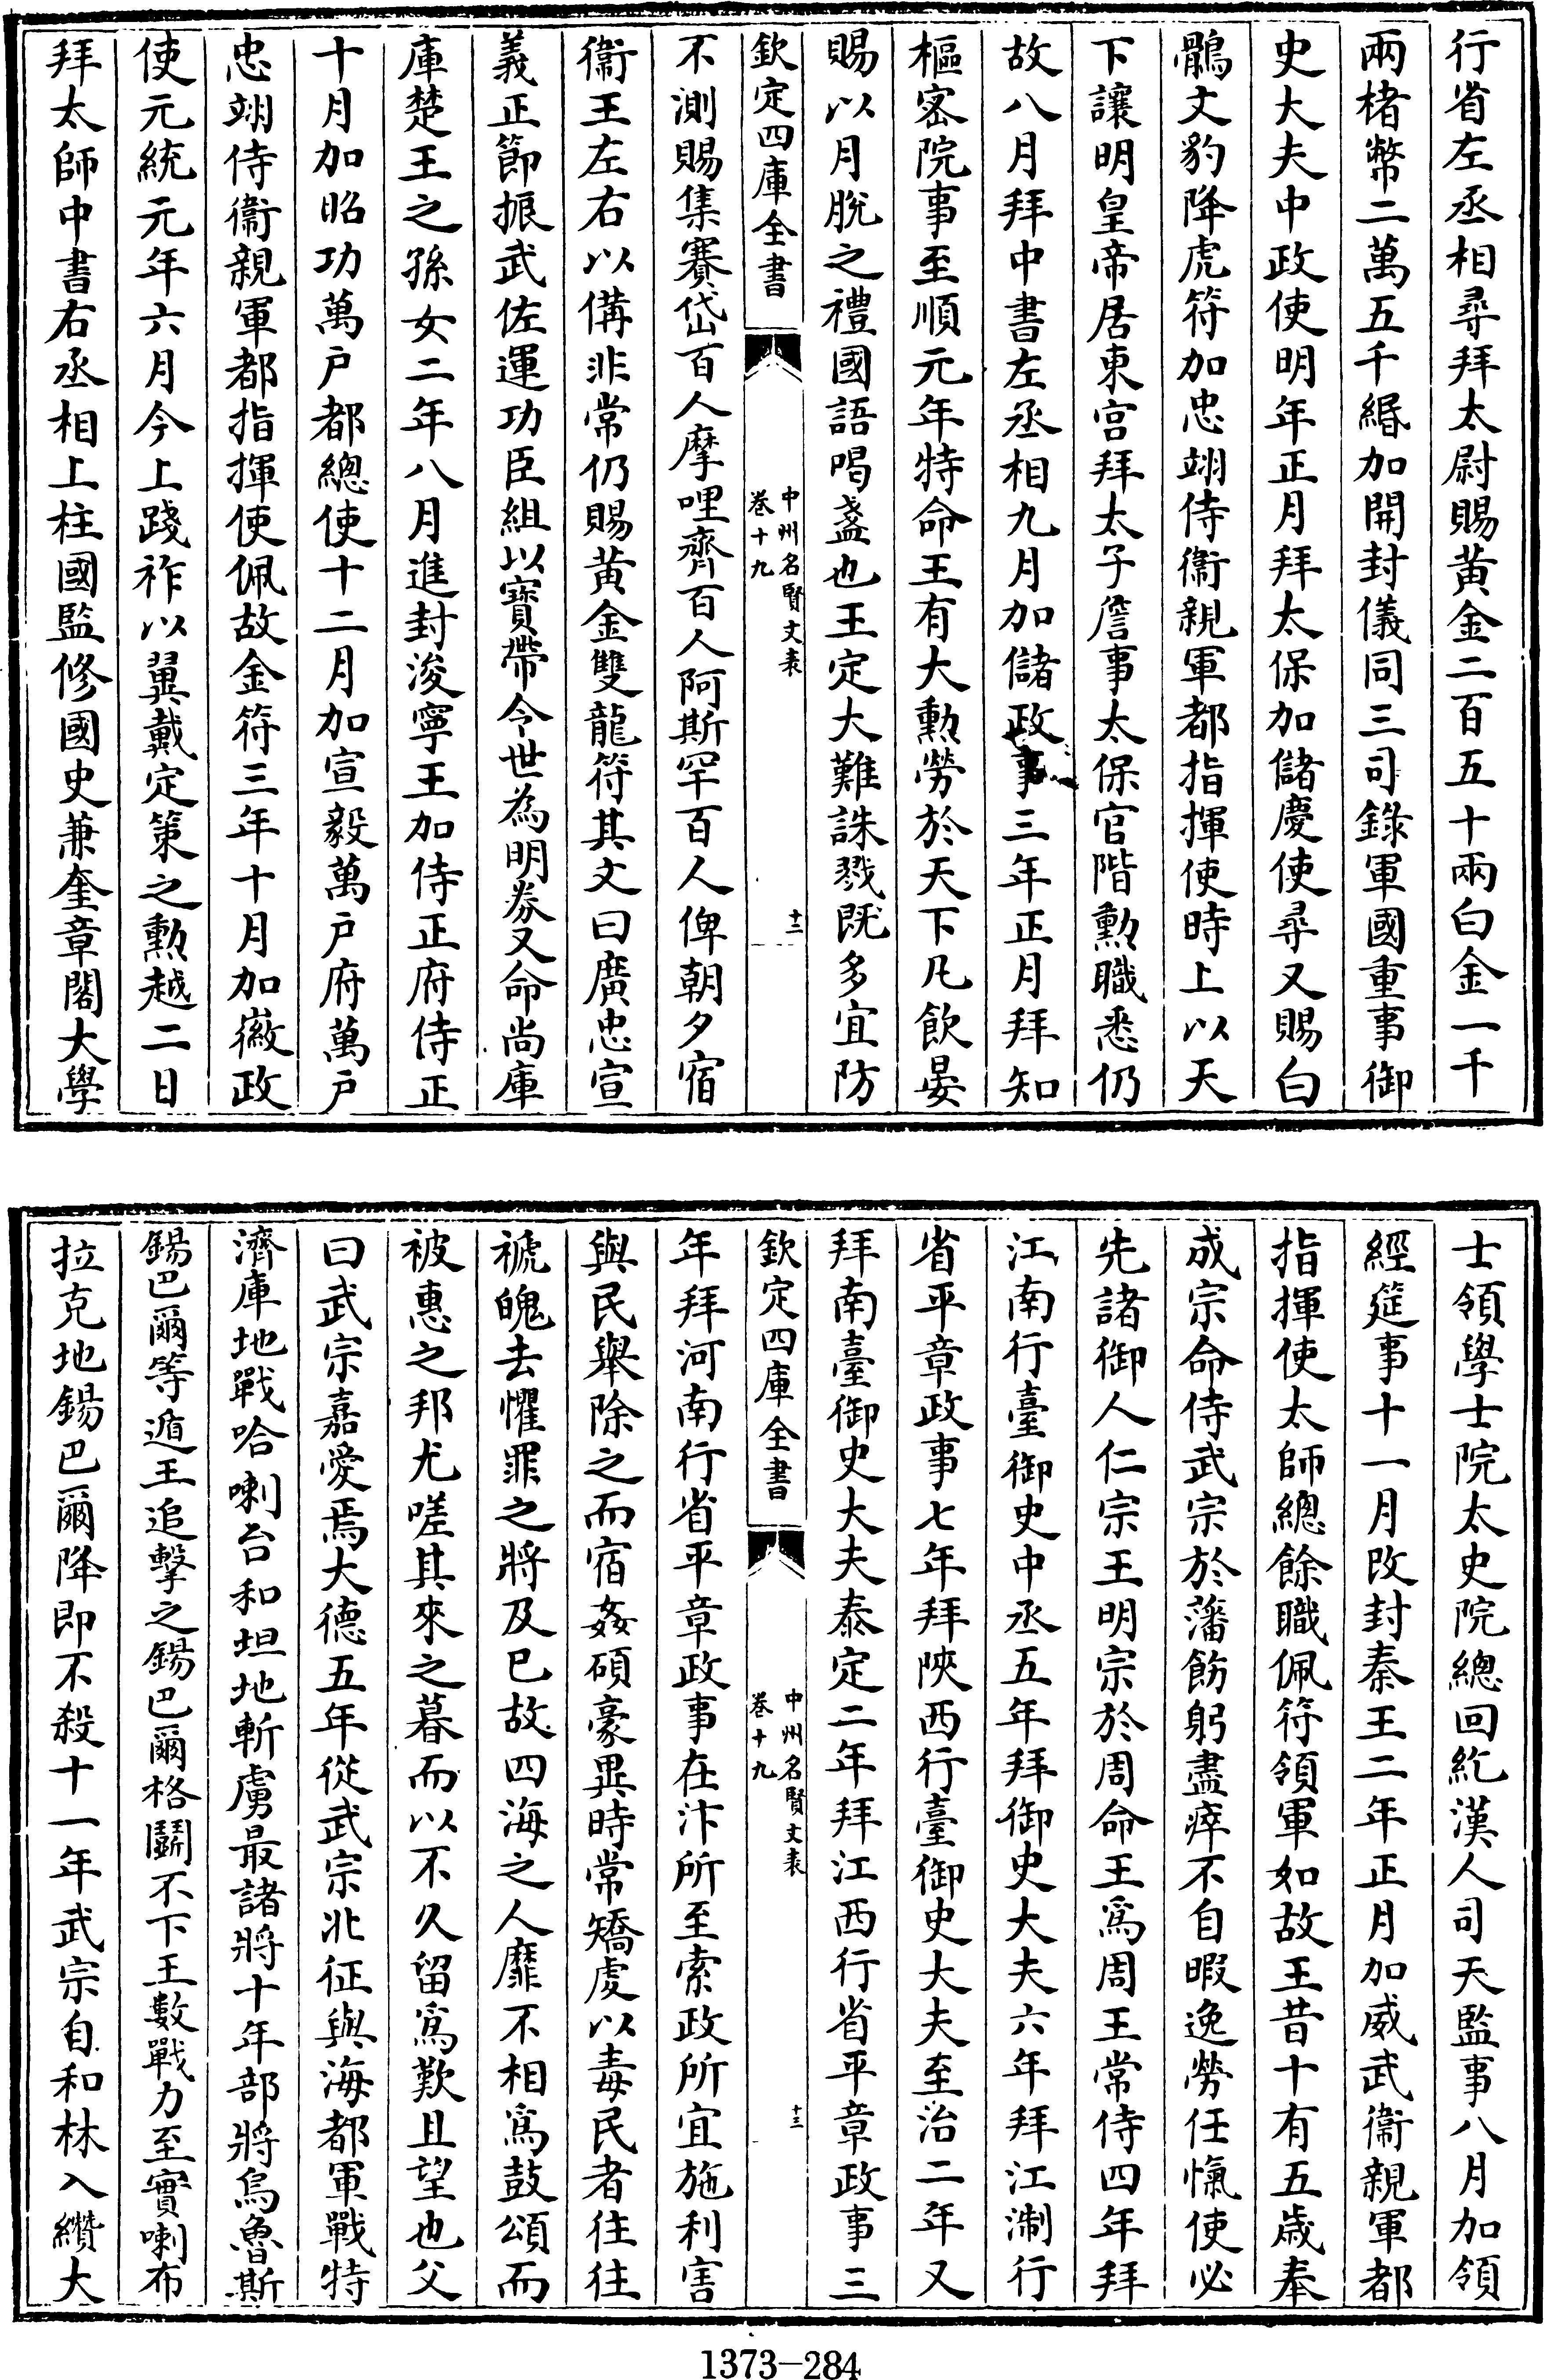 行省左丞相尋拜太尉賜黄金二百五十兩白金一千
兩楮幣二萬五千緡加開封儀同三司錄軍國重事御
史大夫中政使明年正月拜太保加儲慶使尋又賜白
鶻文豹降虎符加忠翊侍衞親軍都指揮使時上以天
下讓明皇帝居東宫拜太子詹事太保官階勲職悉仍
故八月拜中書左丞相九月加儲政事三年正月拜知
樞密院事至順元年特命王有大勲勞於天下凡飲宴
賜以月脱之禮國語喝盞也王定大難誅戮既多宜防
欽定四庫全書
中州名賢文表
卷十九
十二
不測賜集賽岱百人摩哩齊百人阿斯罕百人俾朝夕宿
衞王左右以備非常仍賜黄金雙龍符其文曰廣忠宣
義正節振武佐運功臣組以寶帶令世為明券又命尚庫
庫楚王之孫女二年八月進封浚寧王加侍正府侍正
十月加昭功萬户都總使十二月加宣毅萬户府萬户
忠翊侍衞親軍都指揮使佩故金符三年十月加徽政
使元統元年六月今上踐祚以翼戴定策之勲越二日
拜太師中書右丞相上柱國監修國史兼奎章閣大學
士領學士院太史院總回紇漢人司天監事八月加領
經筵事十一月改封秦王二年正月加威武衞親軍都
指揮使太師總餘職佩符領軍如故王昔十有五歲奉
成宗命侍武宗於藩飭躬盡瘁不自暇逸勞任愾使必
先諸御人仁宗王明宗於周命王為周王常侍四年拜
江南行臺御史中丞五年拜御史大夫六年拜江淛行
省平章政事七年拜陜西行臺御史大夫至治二年又
拜南臺御史大夫泰定二年拜江西行省平章政事三
欽定四庫全書
中州名賢文表
卷十九
十三
年拜河南行省平章政事在汴所至索政所宜施利害
與民舉除之而宿姦碩豪異時常矯虔以毒民者往往
褫魄去懼罪之將及已故四海之人靡不相為鼓頌而
被惠之邦尤嗟其來之暮而以不久留為歎且望也父
曰武宗嘉愛焉大德五年從武宗北征與海都軍戰特
濟庫地戰哈喇台和坦地斬虜最諸將十年部將烏魯斯
錫巴爾等遁王追擊之錫巴爾格鬭不下王數戰力至實喇布
拉克地錫巴爾降即不殺十一年武宗自和林入纘大
1373-284